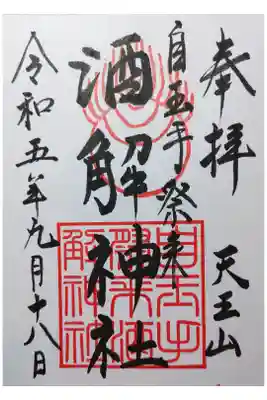 奉拝
天王山
自玉手祭来
酒解神社
令和五年九月十八日
自玉手
祭来酒
解神社